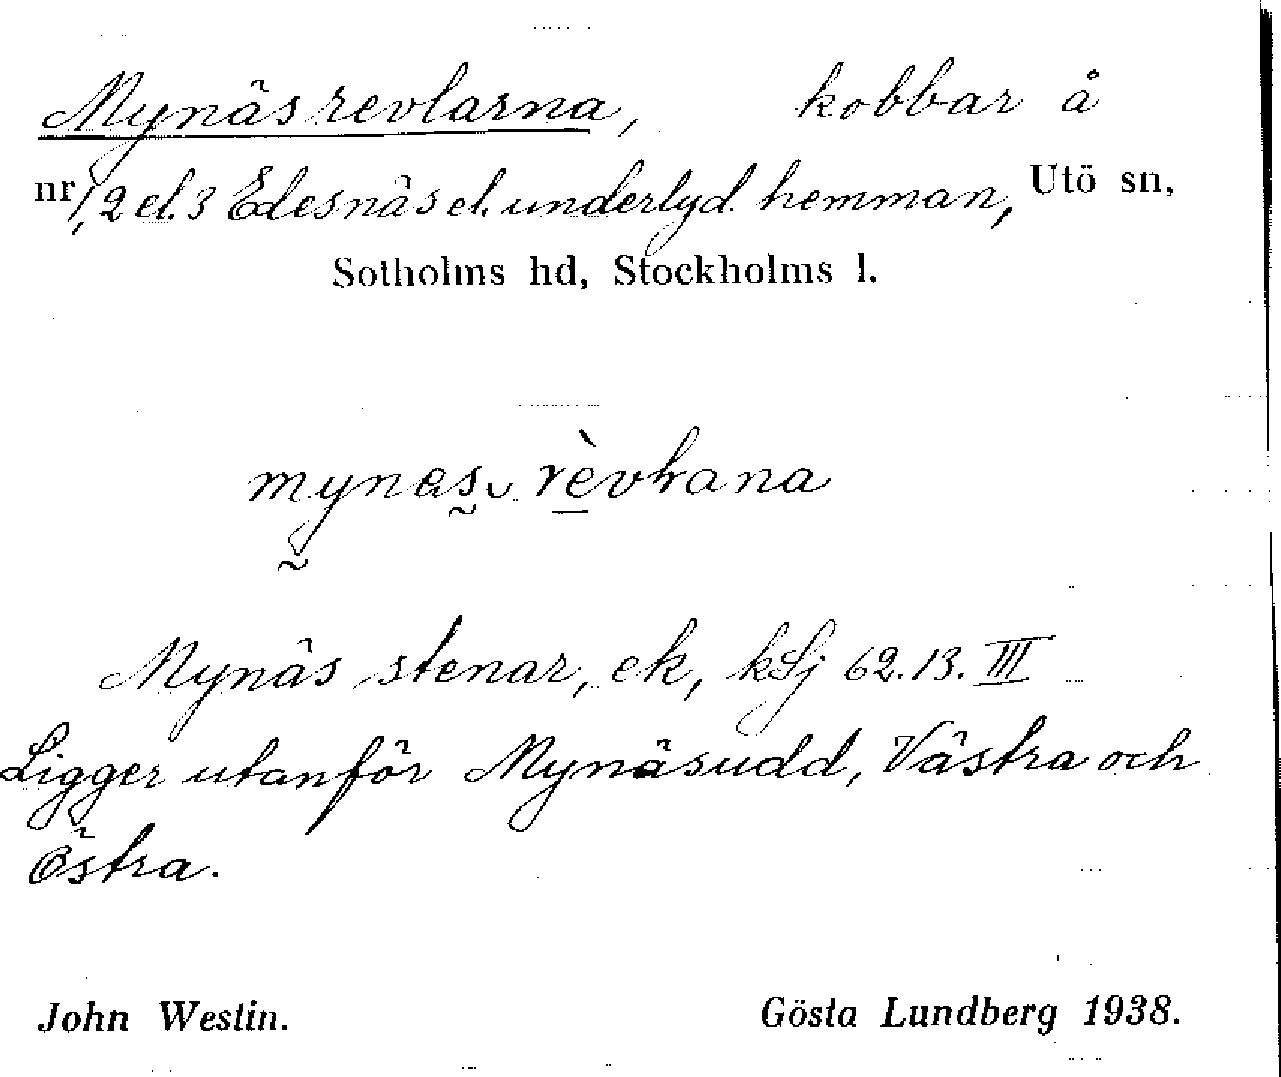 Mynäsrevlarna, kobbar å
nr 1, 2 el. 3 Edesnäs el. underlyd. hemman, Utö sn,
Sotholms hd, Stockholms l.
mynas rèvlrana
Mynäs stenar, ek, kSj 62.13.III
Ligger utanför Mynäsudd, Västra och
Östra.
John Westin. Gösta Lundberg 1938.